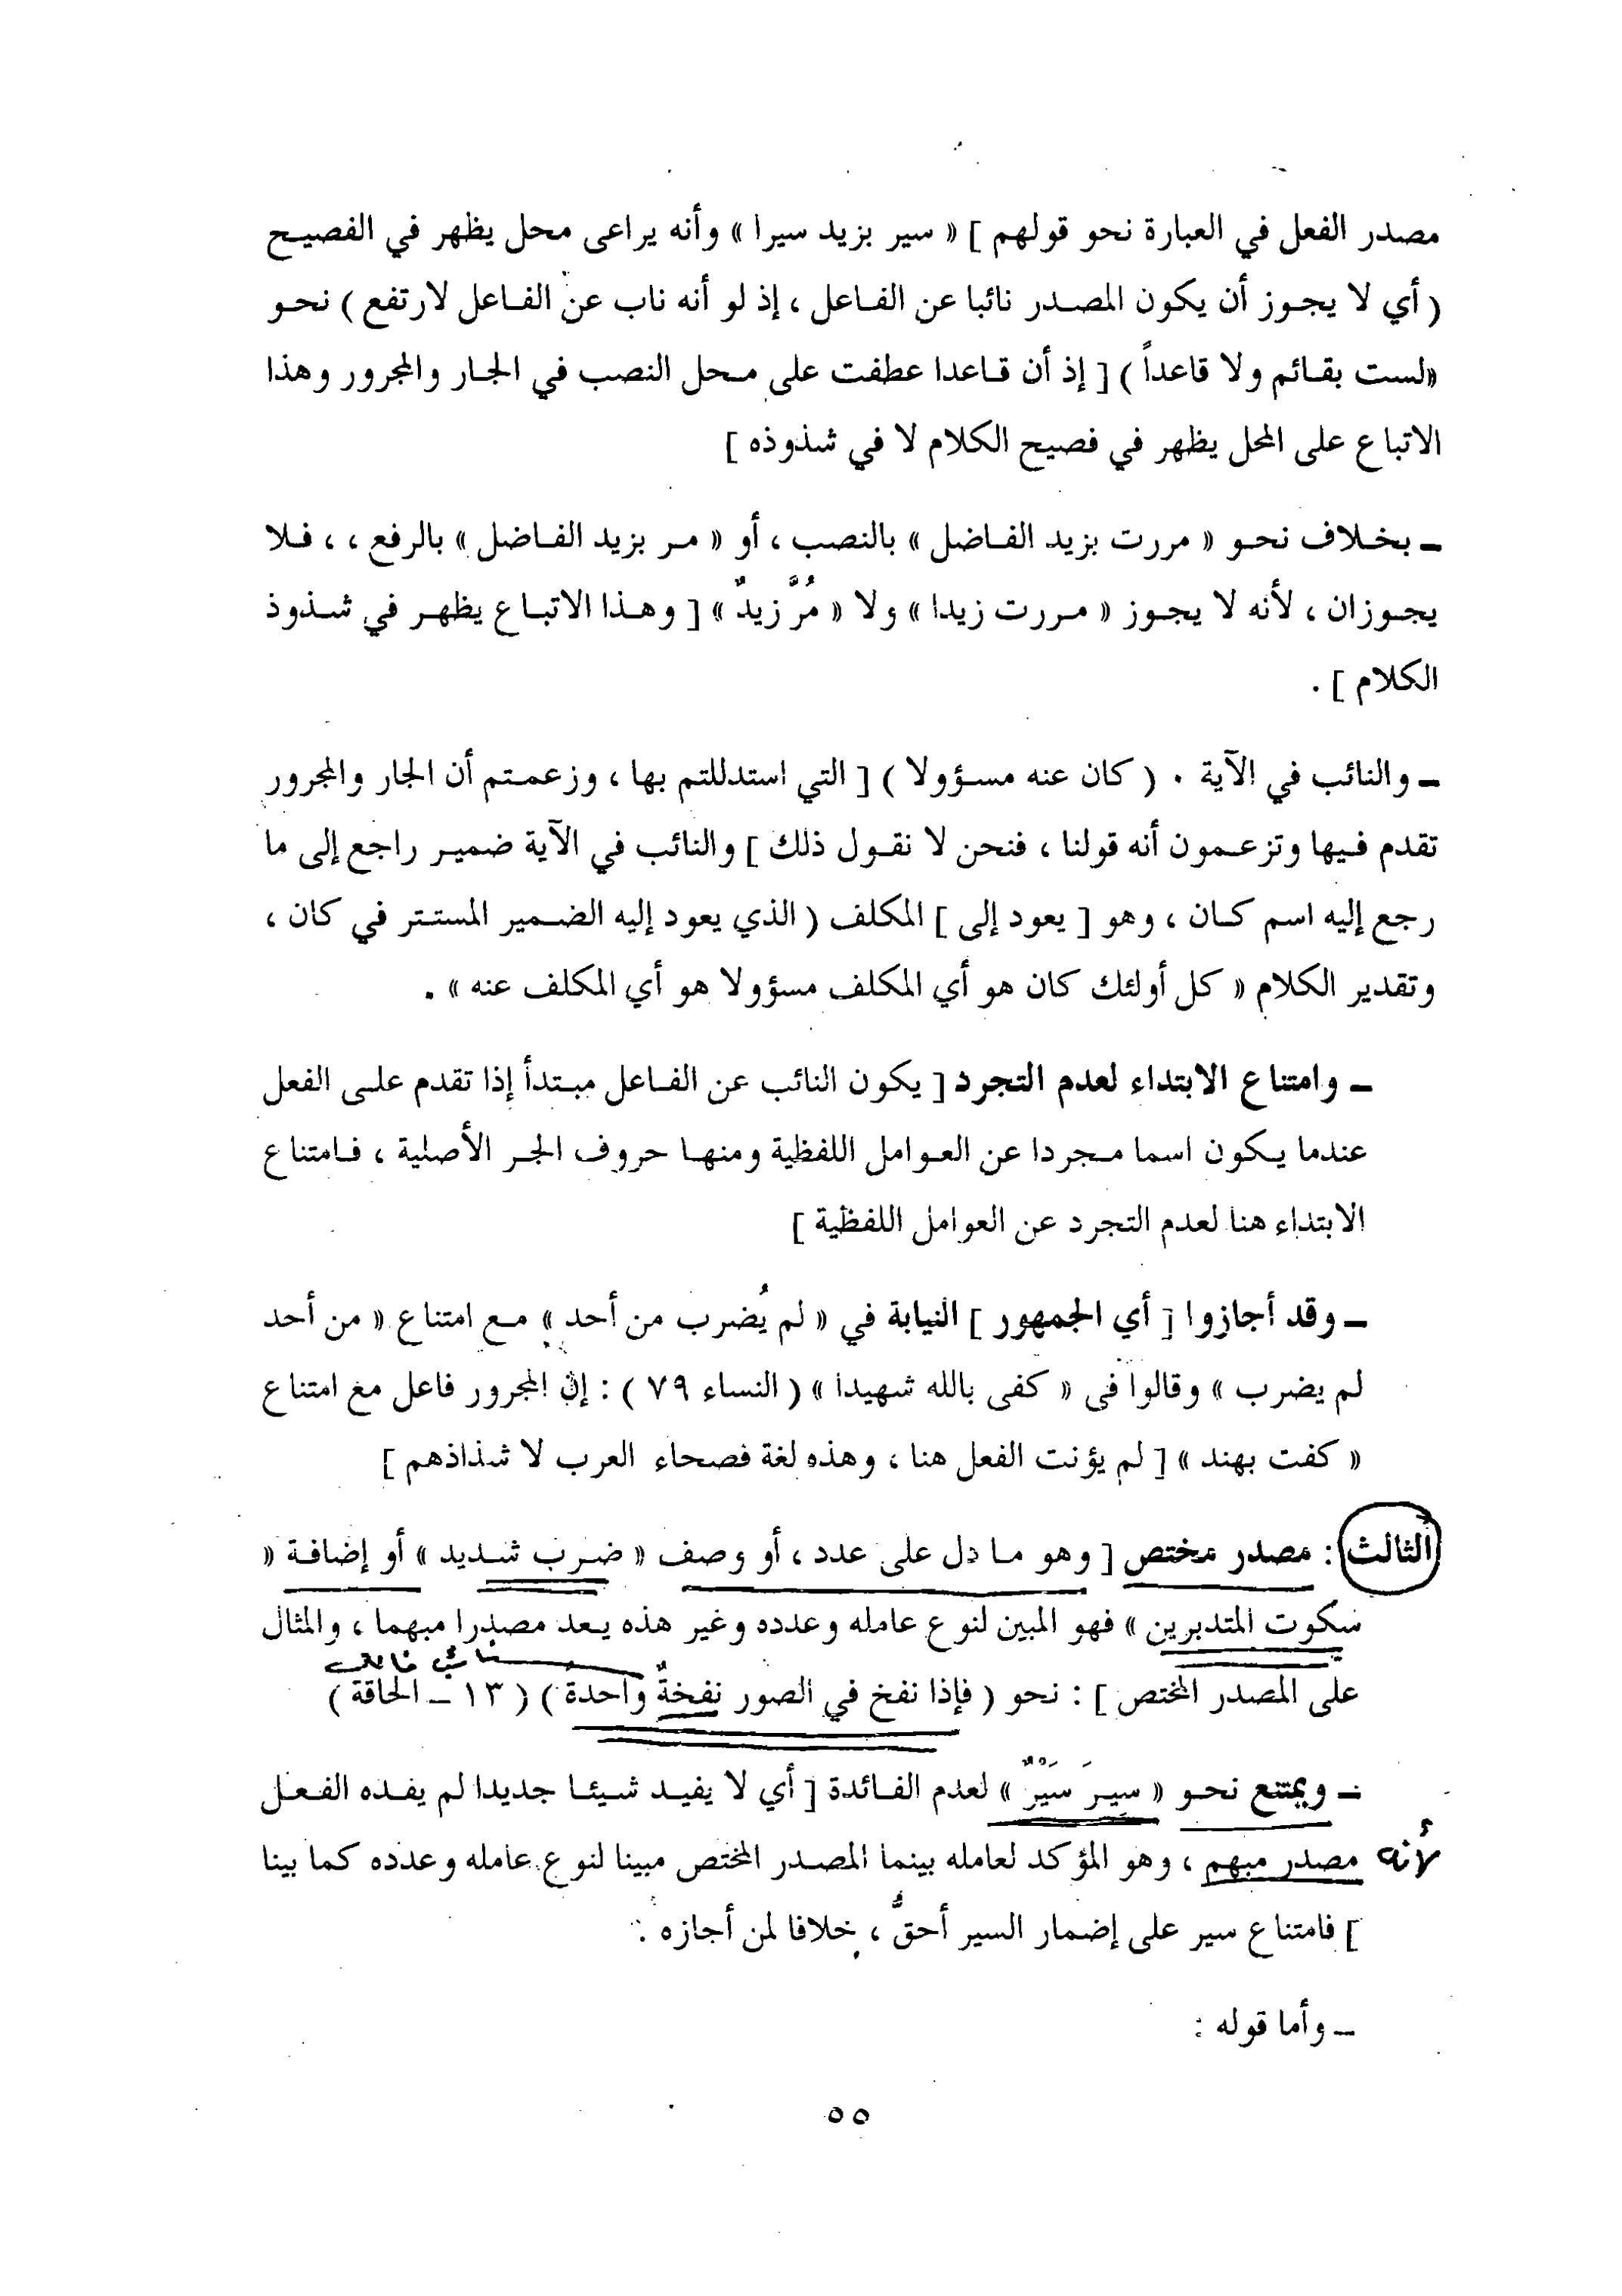 مصدر الفعل في العبارة نحو قولهم ] « سير بزيد سيرا » وأنه يراعى محل يظهر في الفصيح
( أي لا يجوز أن يكون المصدر نائبا عن الفاعل ، إذ لو أنه ناب عن الفاعل لارتفع ) نحو
«لست بقائم ولا قاعداً ) [ إذ أن قاعدا عطفت على محل النصب في الجار والمجرور وهذا
الاتباع على المحل يظهر في فصيح الكلام لا في شذوذه ]
ـ بخلاف نحو « مررت بزيد الفاضل » بالنصب ، أو « مر بزيد الفاضل » بالرفع ، ، فلا
يجوزان ، لأنه لا يجوز « مررت زيدا » ولا « مُرَّ زيدٌ » [ وهذا الاتباع يظهر في شذوذ
الكلام ] .
ـ والنائب في الآية . ( كان عنه مسؤولا ) [ التي استدللتم بها ، وزعمتم أن الجار والمجرور
تقدم فيها وتزعمون أنه قولنا ، فنحن لا نقول ذلك ] والنائب في الآية ضمير راجع إلى ما
رجع إليه اسم كان ، وهو [ يعود إلى ] المكلف ( الذي يعود إليه الضمير المستتر في كان ،
وتقدير الكلام « كل أولئك كان هو أي المكلف مسؤولا هو أي المكلف عنه » .
ـ وامتناع الابتداء لعدم التجرد [ يكون النائب عن الفاعل مبتدأ إذا تقدم على الفعل
عندما يكون اسما مجردا عن العوامل اللفظية ومنها حروف الجر الأصلية ، فامتناع
الابتداء هنا لعدم التجرد عن العوامل اللفظية ]
ـ وقد أجازوا [ أي الجمهور ] النيابة في « لم يُضرب من أحد » مع امتناع « من أحد
لم يضرب » وقالوا في « كفى بالله شهيدا » ( النساء ٧٩ ) : إن المجرور فاعل مع امتناع
« كفت بهند » [ لم يؤنت الفعل هنا ، وهذه لغة فصحاء العرب لا شذاذهم ]
الثالث : مصدر مختص [ وهو ما دل على عدد ، أو وصف « ضرب شديد » أو إضافة «
سكوت المتدبرين » فهو المبين لنوع عامله وعدده وغير هذه يعد مصدرا مبهما ، والمثال
نائب فاعل
على المصدر المختص ] : نحو ( فإذا نفخ في الصور نفخةٌ واحدة ) ( ١٣ ـ الحاقة )
ـ ويمتنع نحو « سِيرَ سَيْرٌ » لعدم الفائدة [ أي لا يفيد شيئا جديدا لم يفده الفعل
لأنه مصدر مبهم ، وهو المؤكد لعامله بينما المصدر المختص مبينا لنوع عامله وعدده كما بينا
] فامتناع سير على إضمار السير أحقُّ ، خلافا لمن أجازه .
ـ وأما قوله :
٥٥